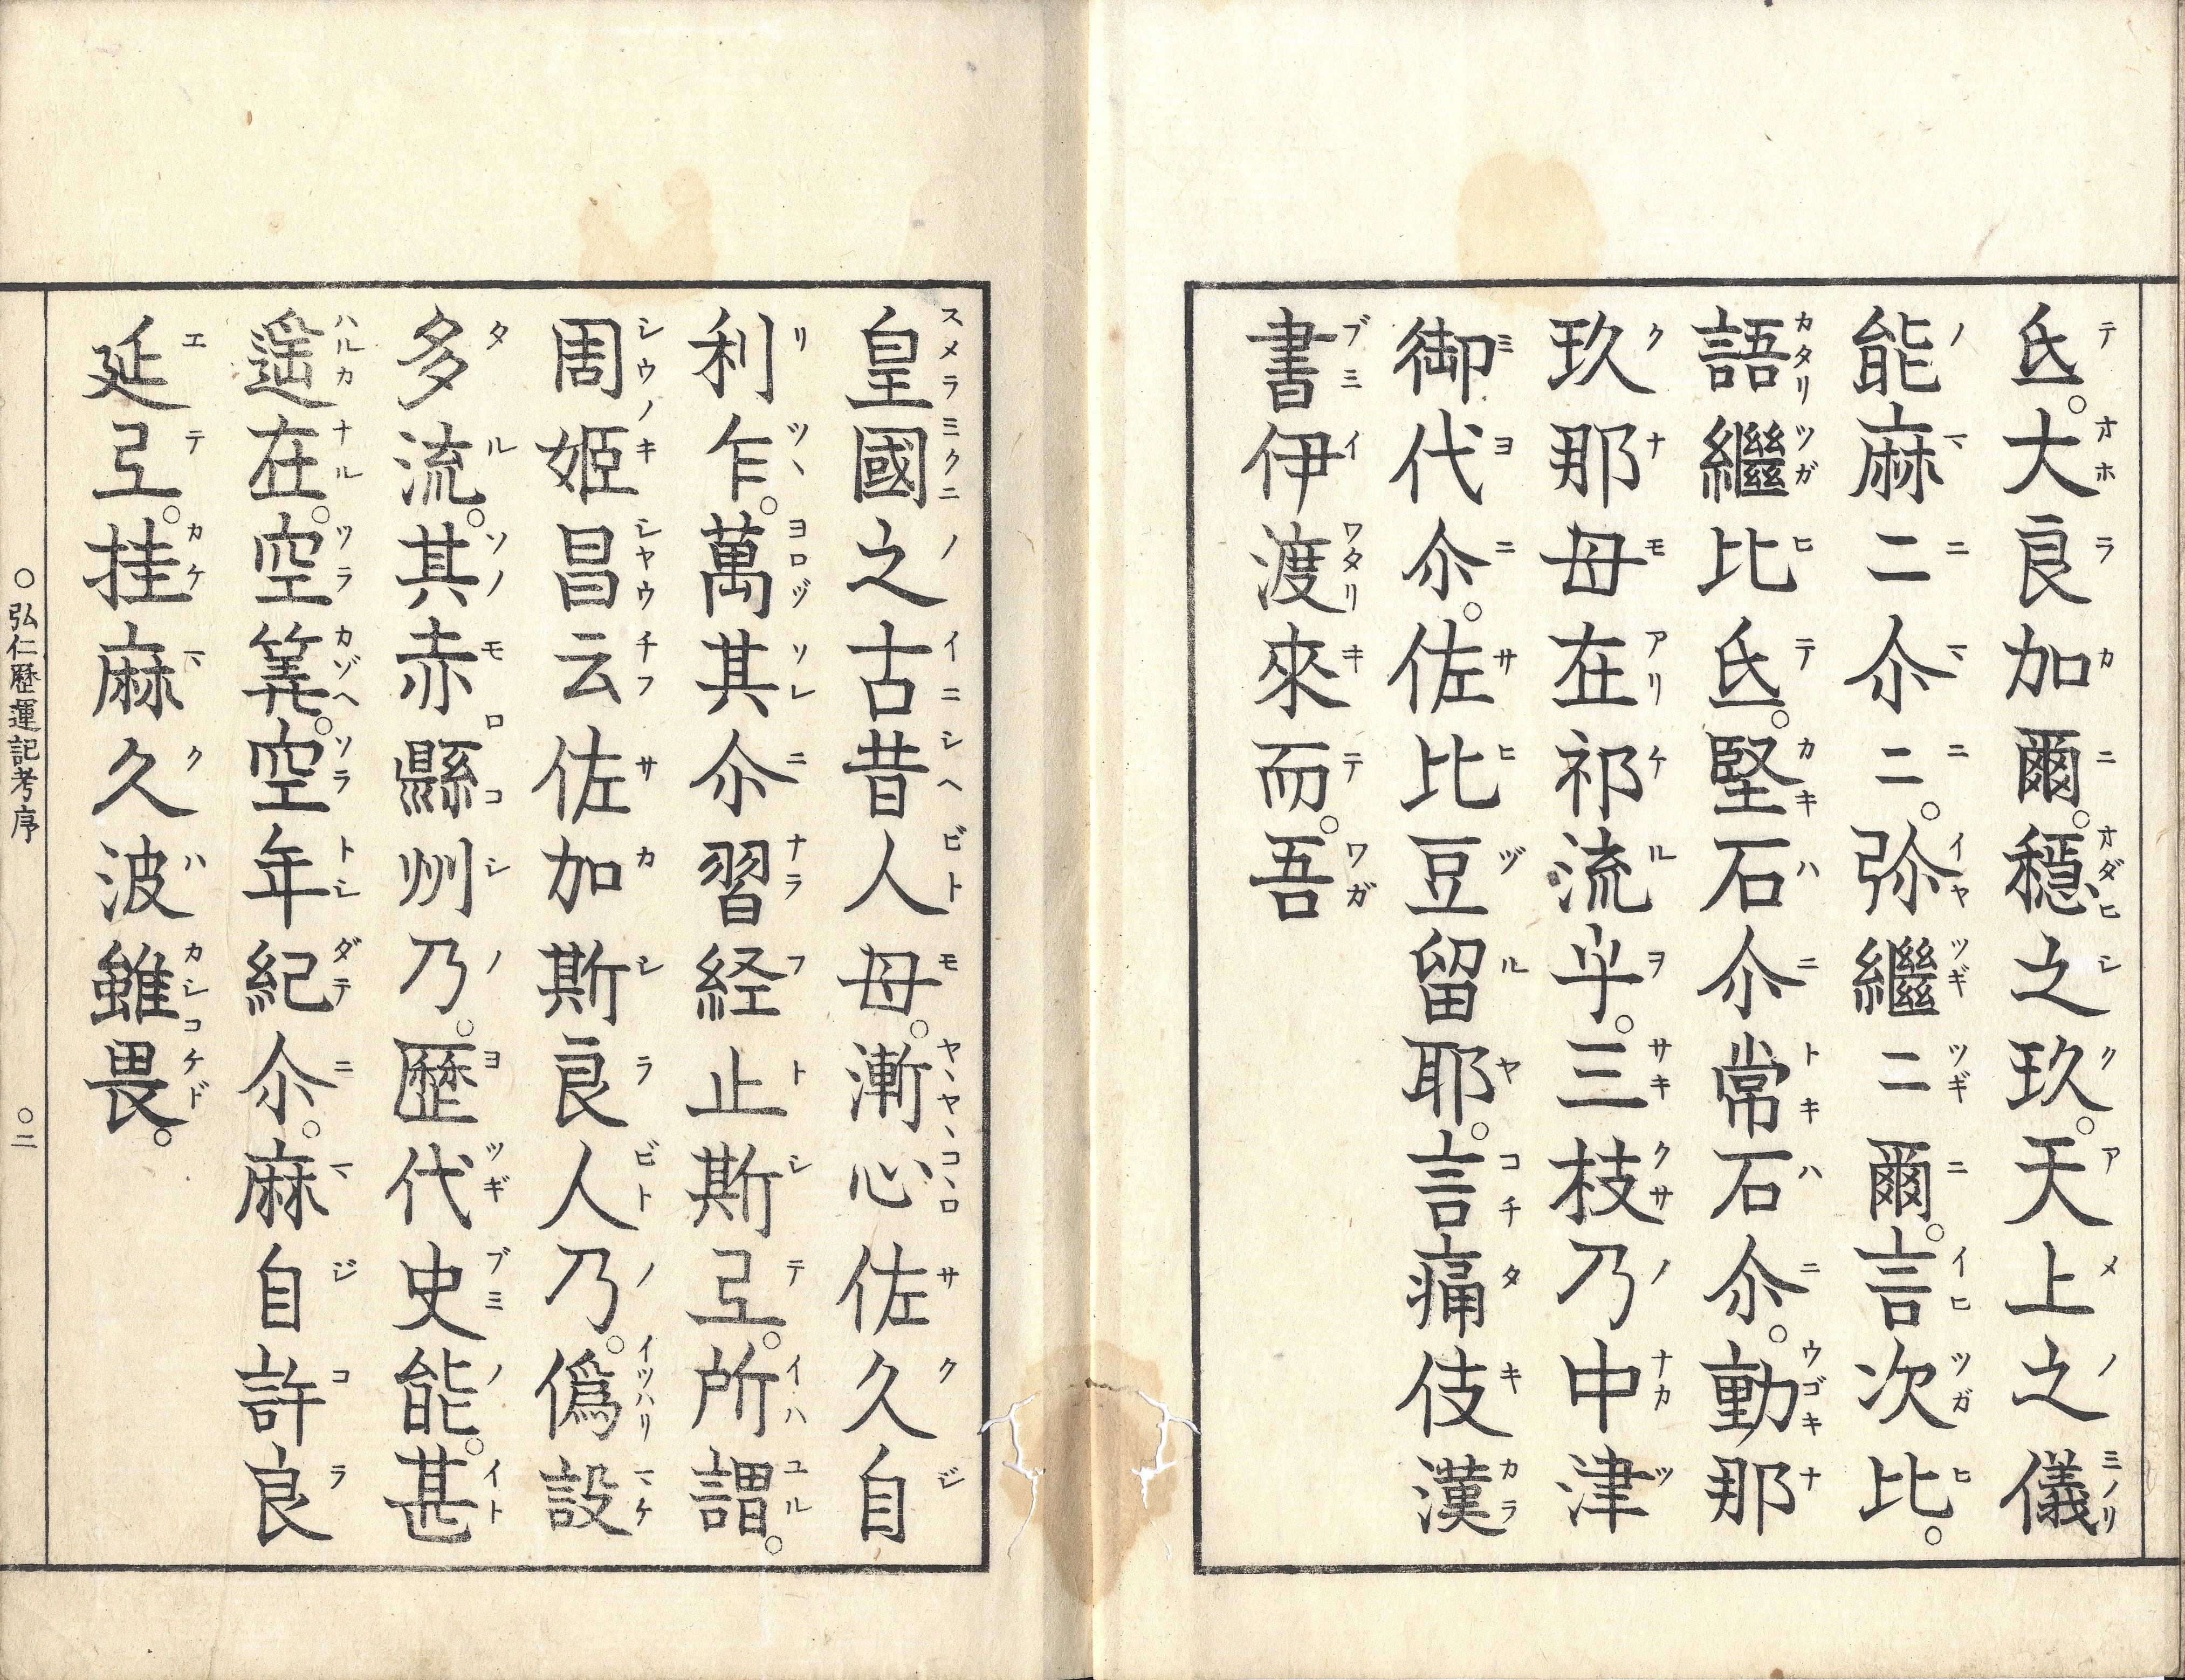 氐。大良加爾。穩之玖。天上之儀
能麻二尒二。弥繼二爾。言次比。
語繼比氐。堅石尒常石尒。動那
玖那母在祁流乎。三枝乃中津
御代尒。佐比豆留耶。言痛伎漢
書伊渡來而。吾
皇國之古昔人母。漸心佐久自
利乍。萬其尒習経止斯弖。所謂。
周姬昌云佐加斯良人乃。僞設
多流。其赤縣州乃。歷代史能。甚
遥在。空筭。空年紀尒。麻自許良
延弖。挂麻久波雖畏。
○弘仁歷運記考序 ○二